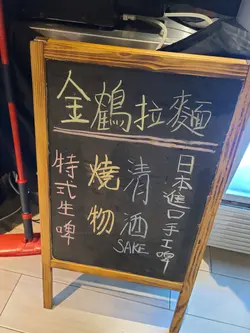 金鶴拉麵
日本進口手工啤
清酒
SAKE
燒物
特式生啤